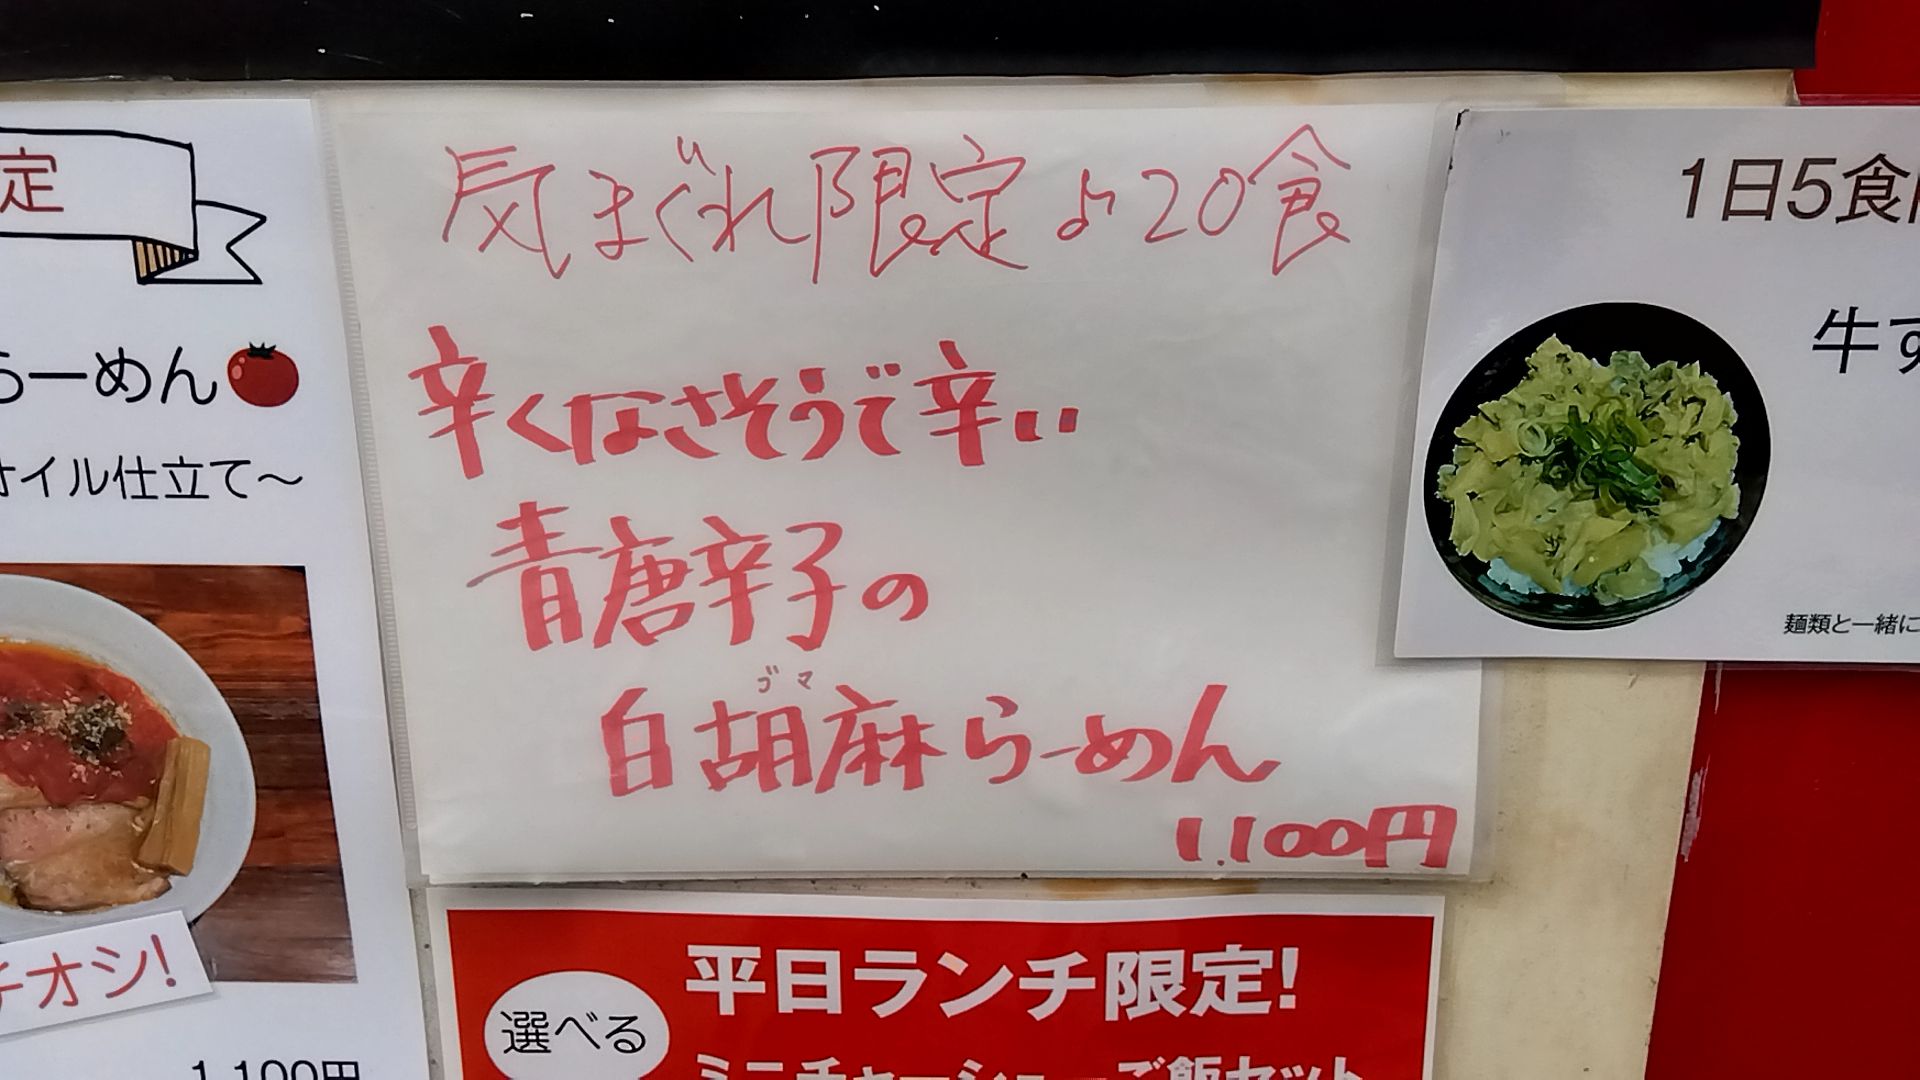 定
らーめん
オイル仕立て〜
チオシ!
1,100円
気まぐれ限定 20食
辛くなさそうで辛い
青唐辛子の
ゴマ
白胡麻らーめん
1,100円
平日ランチ限定!
選べる
ミニチャーシューご飯セット
1日5食
牛す
麺類と一緒に